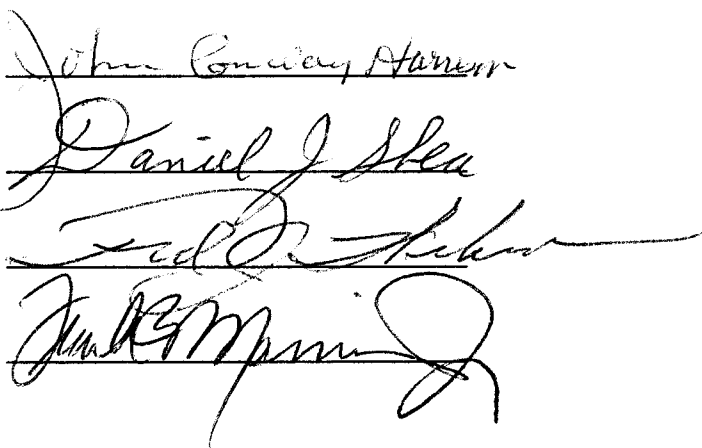 John Conway Harrison
Daniel J Shea
Fred J
Frank B Morrison Jr